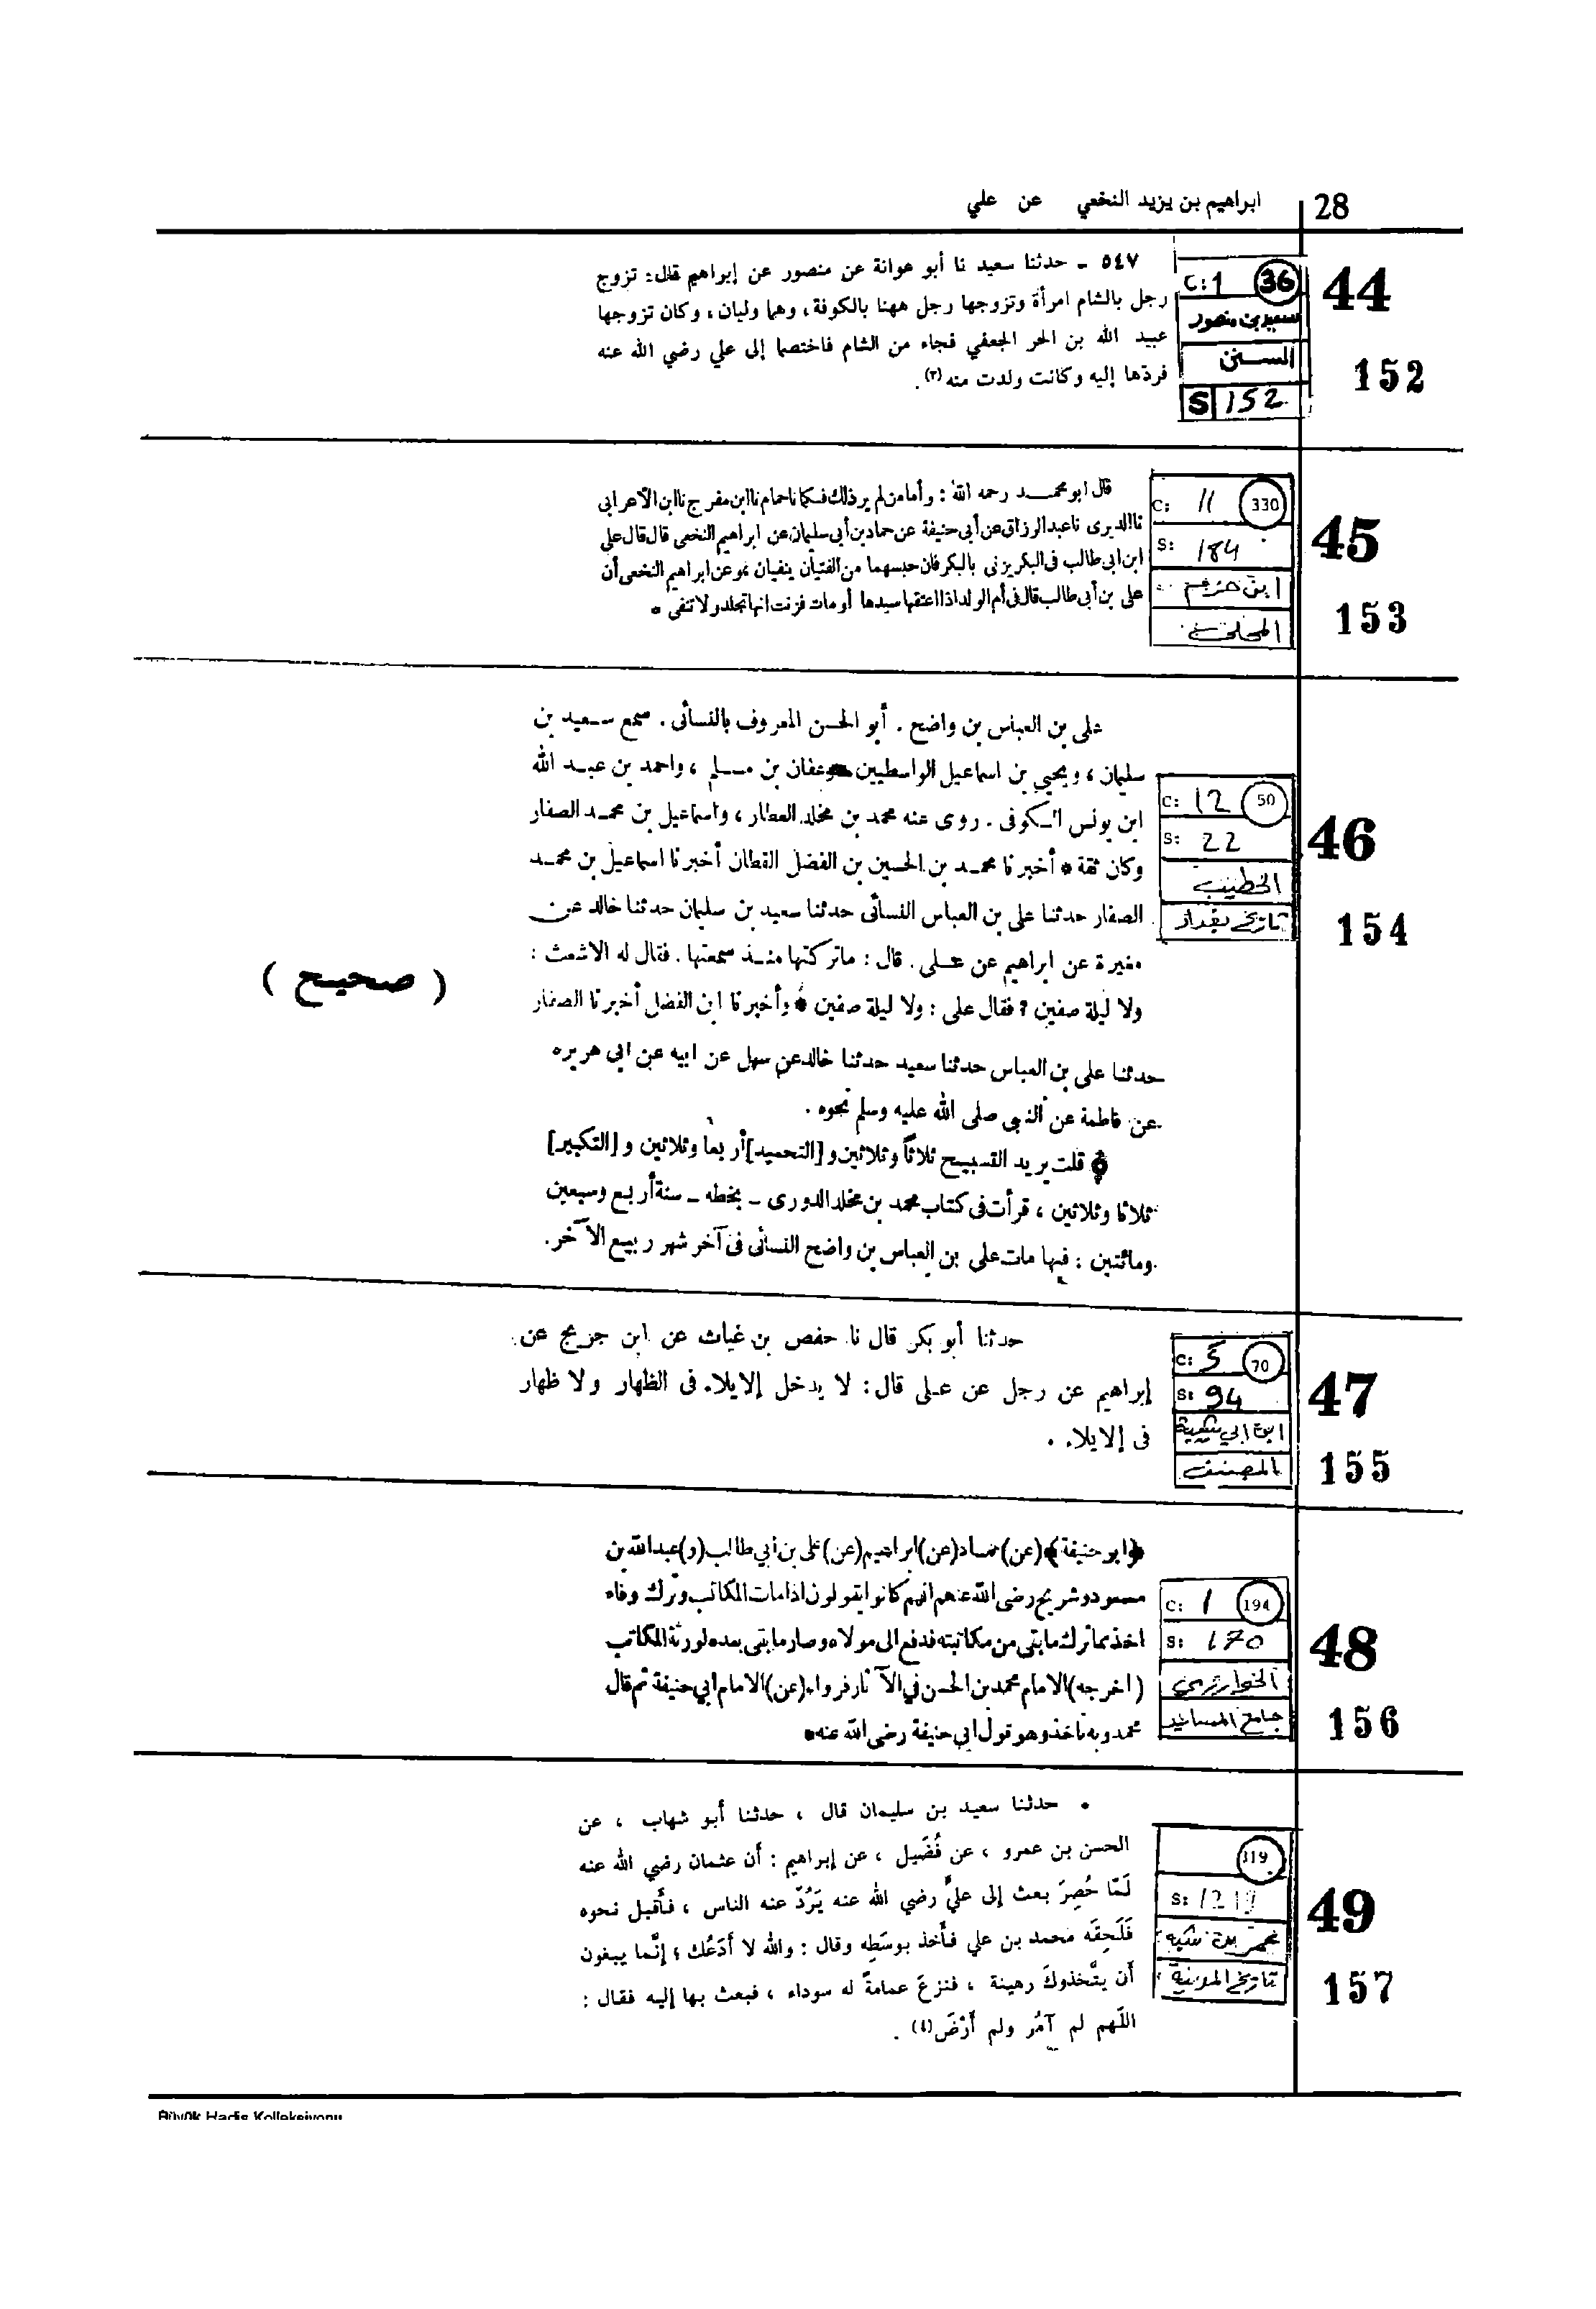 28
ابراهيم بن يزيد النخعي عن علي
44
152
C: 1 36
سعيد بن منصور
السنن
S 152
٥٤٧ ـ حدثنا سعيد نا أبو عوانة عن منصور عن إبراهيم قال: تزوج
رجل بالشام امرأة وتزوجها رجل ههنا بالكوفة، وهما وليان، وكان تزوجها
عبيد الله بن الحر الجعفي فجاء من الشام فاختصما إلى علي رضي الله عنه
فردّها إليه وكانت ولدت منه (٣).
45
153
C: 11 330
S: 184
ابن حزم
المحلى
قال ابو محمد رحمه الله: وأما من لم ير ذلك فكما ناحمام نا ابن مفرج نا ابن الأعرابى
نا الدبرى نا عبد الرزاق عن أبى حنيفة عن حماد بن أبى سليمان عن ابراهيم النخعى قال قال على
ابن ابى طالب فى البكر يزنى بالبكر فان حبسهما من الفتيان ينفيان، وعن ابراهيم النخعى أن
على بن أبى طالب قال فى أم الولد اذا اعتقها سيدها أو مات فزنت انها تجلد ولا تنفى *
46
154
C: 12 50
S: 22
الخطيب
تاريخ بغداد
على بن العباس بن واضح. أبو الحسن المعروف بالنسائى. سمع سعيد بن
سليمان، ويحيى بن اسماعيل الواسطيين وعفان بن مسلم، واحمد بن عبد الله
ابن يونس الكوفى. روى عنه محمد بن مخلد العطار، واسماعيل بن محمد الصفار
وكان ثقة * أخبرنا محمد بن الحسين بن الفضل القطان أخبرنا اسماعيل بن محمد
الصفار حدثنا على بن العباس النسائى حدثنا سعيد بن سليمان حدثنا خالد عن
مغيرة عن ابراهيم عن على. قال: ماتركتها منذ سمعتها. فقال له الاشعث:
( صحيح )
ولا ليلة صفين؟ فقال على: ولا ليلة صفين * وأخبرنا ابن الفضل أخبرنا الصفار
حدثنا على بن العباس حدثنا سعيد حدثنا خالد عن سهل عن ابيه عن ابى هريره
عن فاطمة عن النبى صلى الله عليه وسلم نحوه.
* قلت يريد التسبيح ثلاثاً وثلاثين و [التحميد] أربعا وثلاثين و [التكبير]
ثلاثا وثلاثين، قرأت فى كتاب محمد بن مخلد الدورى ـ بخطه ـ سنة أربع وسبعين
ومائتين: فيها مات على بن العباس بن واضح النسائى فى آخر شهر ربيع الآخر.
47
155
C: 5 70
S: 94
ابن ابي شيبة
المصنف
حدثنا أبو بكر قال نا حفص بن غياث عن ابن جريج عن
إبراهيم عن رجل عن على قال: لا يدخل إلايلاء فى الظهار ولا ظهار
فى إلايلاء.
48
156
C: 1 194
S: 170
الخوارزمي
جامع المسانيد
(ابو حنيفة) (عن) حماد (عن) ابراهيم (عن) على بن ابي طالب (و) عبدالله بن
مسعود وشريح رضى الله عنهم انهم كانوا يقولون اذا مات المكاتب وترك وفاء
اخذ مما ترك ما بقى من مكاتبته فدفع الى مولاه وصار ما بقى بعده لورثة المكاتب
(اخرجه) الامام محمد بن الحسن في الآثار فرواه (عن) الامام ابي حنيفة ثم قال
محمد وبه نأخذ وهو قول ابي حنيفة رضى الله عنه *
49
157
319
S: 1219
عمر بن شبه
تاريخ المدينة
• حدثنا سعيد بن سليمان قال، حدثنا أبو شهاب، عن
الحسن بن عمرو، عن فُضَيل، عن إبراهيم: أن عثمان رضي الله عنه
لَمّا حُصِرَ بعث إلى عليٍّ رضي الله عنه يَرُدّ عنه الناس، فأقبل نحوه
فَلَحِقَه محمد بن علي فأخذ بوسَطِه وقال: والله لا أدَعُك؛ إنّما يبغون
أن يتّخذوكَ رهينة، فنزعَ عمامةً له سوداء، فبعث بها إليه فقال:
اللّهم لم آمُر ولم أرْضَ (٤).
Büyük Hadis Kolleksiyonu